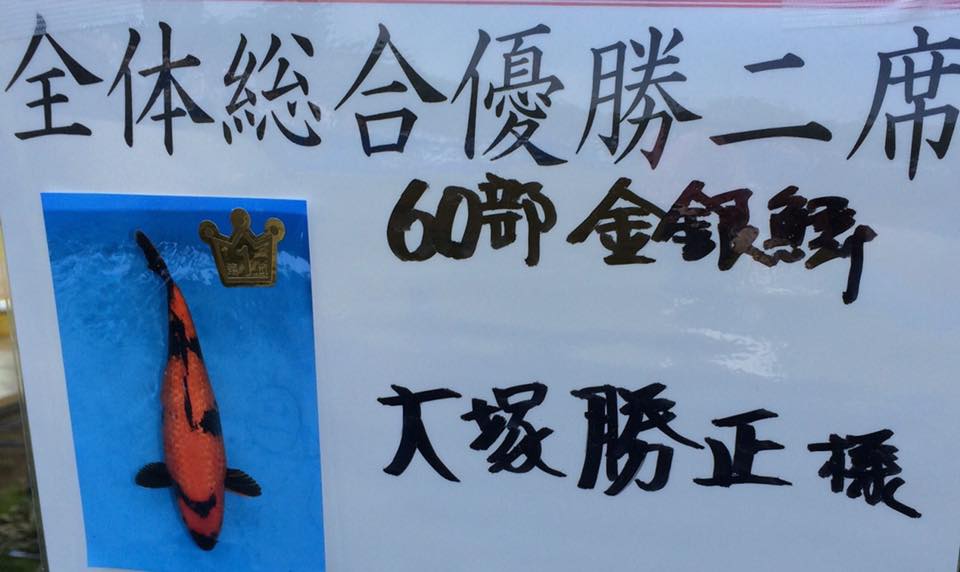 全体総合優勝二席
60部 金銀鱗
大塚勝正様